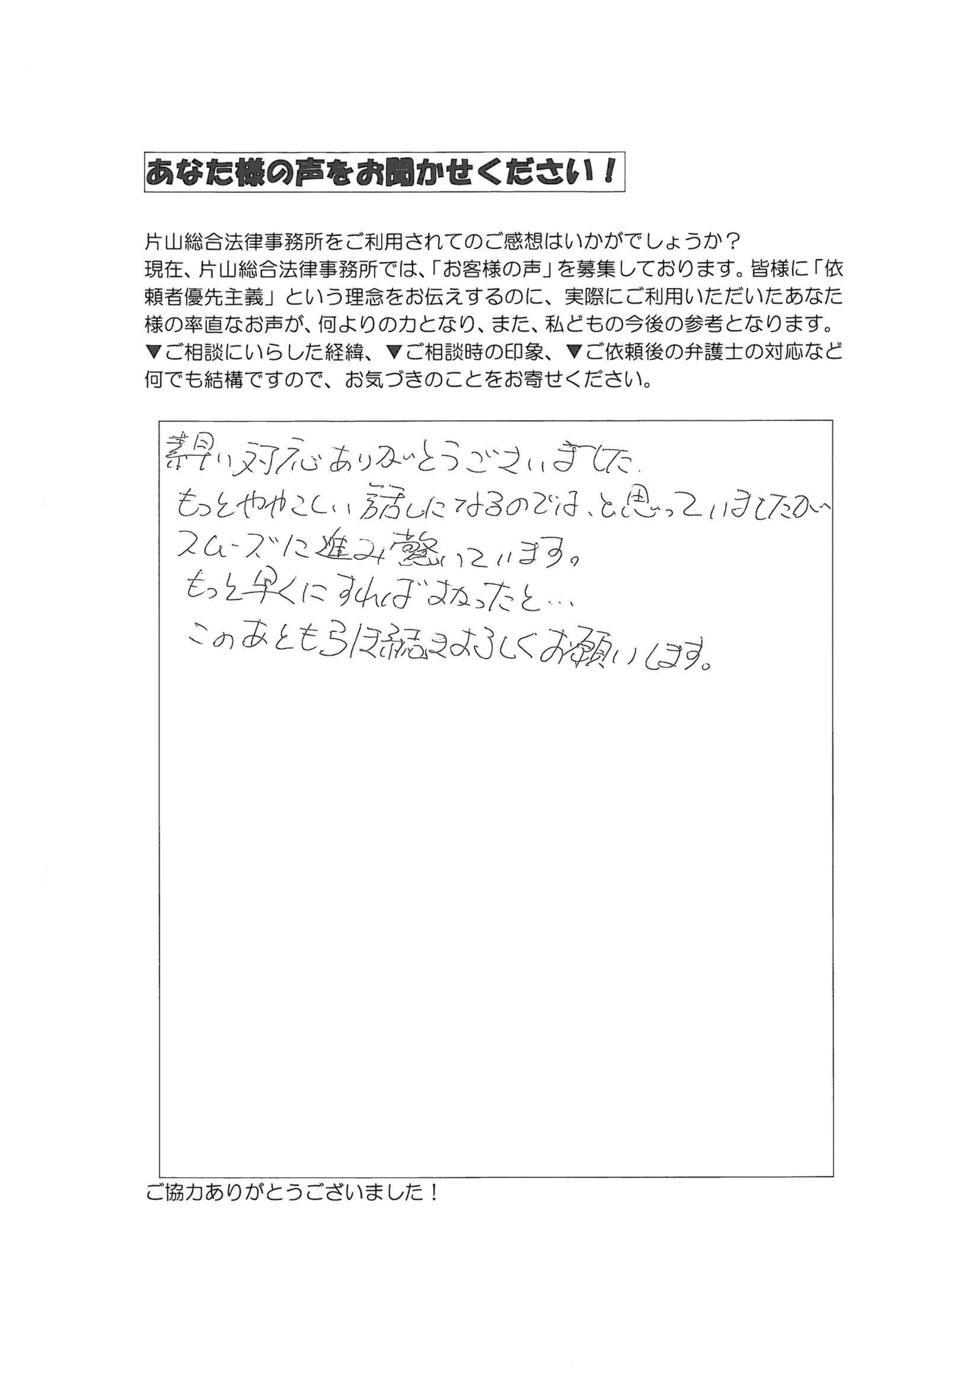 あなた様の声をお聞かせください！
片山総合法律事務所をご利用されてのご感想はいかがでしょうか？
現在、片山総合法律事務所では、「お客様の声」を募集しております。皆様に「依
頼者優先主義」という理念をお伝えするのに、実際にご利用いただいたあなた
様の率直なお声が、何よりの力となり、また、私どもの今後の参考となります。
▼ご相談にいらした経緯、▼ご相談時の印象、▼ご依頼後の弁護士の対応など
何でも結構ですので、お気づきのことをお寄せください。
素早い対応ありがとうございました.
もっとややこしい話しになるのでは、と思っていましたが
スムーズに進み驚いています。
もっと早くにすればよかったと…
このあともよろしくお願いします。
ご協力ありがとうございました！